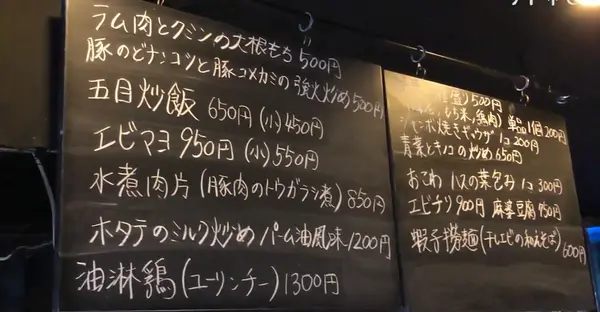 ラム肉とクミンの大根もち 500円
豚のどナンコツと豚コメカミの強火炒め 500円
五目炒飯 650円 (小) 450円
エビマヨ 950円 (小) 550円
水煮肉片 (豚肉のトウガラシ煮) 850円
ホタテのミルク炒め バーム油風味 1200円
油淋鶏 (ユーリンチー) 1300円
500円
もち米, 鶏肉) 単品1個 200円
ジャンボ焼きギョウザ 1コ 200円
青菜とキノコの炒め 650円
おこわ ハスの葉包み 1コ 300円
エビチリ 900円 麻婆豆腐 950円
蝦子撈麺 (干しエビの和えそば) 600円